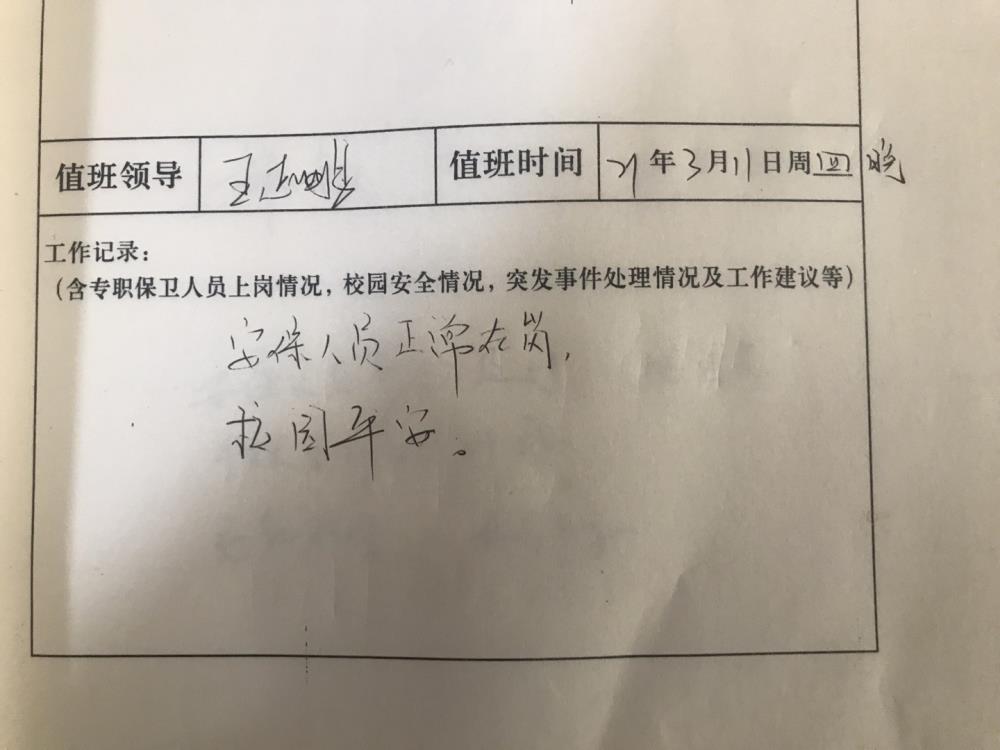 值班领导 王 值班时间 21年3月11日周四晚
工作记录：
（含专职保卫人员上岗情况，校园安全情况，突发事件处理情况及工作建议等）
安保人员正常在岗，
校园平安。